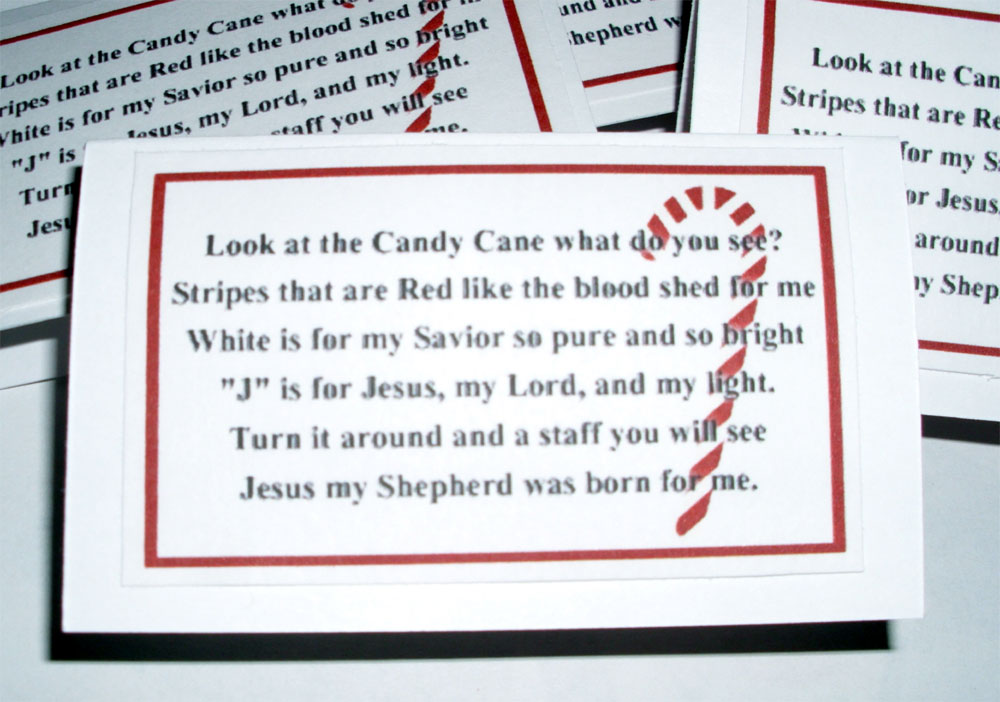 Look at the Candy Cane what do you see?
Stripes that are Red like the blood shed for me
White is for my Savior so pure and so bright
"J" is for Jesus, my Lord, and my light.
Turn it around and a staff you will see
Jesus my Shepherd was born for me.
Look at the Candy Cane what
ripes that are Red like the blood shed for
White is for my Savior so pure and so bright
"J" is Jesus, my Lord, and my light.
Turn staff you will see
Jesu me.
und and
hepherd w
Look at the Can
Stripes that are Re
for my S
or Jesus,
around
my Shep